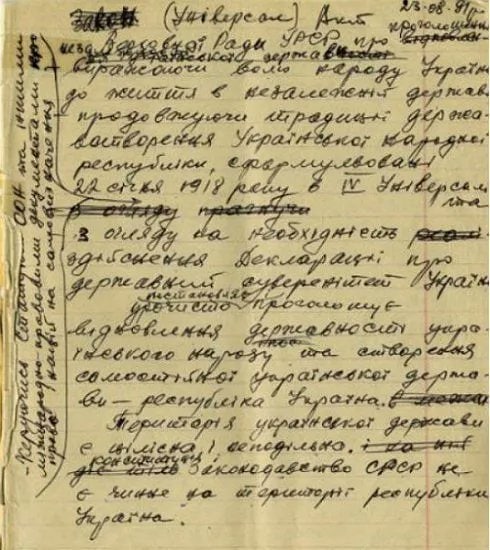 Закон (Універсал) Акт
23-08-91 р.
проголошення
Верховної Ради УРСР про
незалежної української держави
виражаючи волю народу України
до життя в незалежній державі
продовжуючи традиції держа-
вотворення Української народної
республіки, сформульовані
22 січня 1918 року в IV Універсалі
та
в огляду прагнучи
з огляду на необхідність
здійснення Декларації про
державний суверенітет України
урочисто проголошує
відновлення державності укра-
їнського народу та створення
самостійної української держа-
ви – республіка Україна.
Територія української держави
є цілісна і неподільна. і на ній
конституція і
діє лише Законодавство СРСР не
є чинне на території республіки
Україна.
- Керуючись Статутом ООН та іншими
міжнародно-правовими документами про
право націй на самовизначення